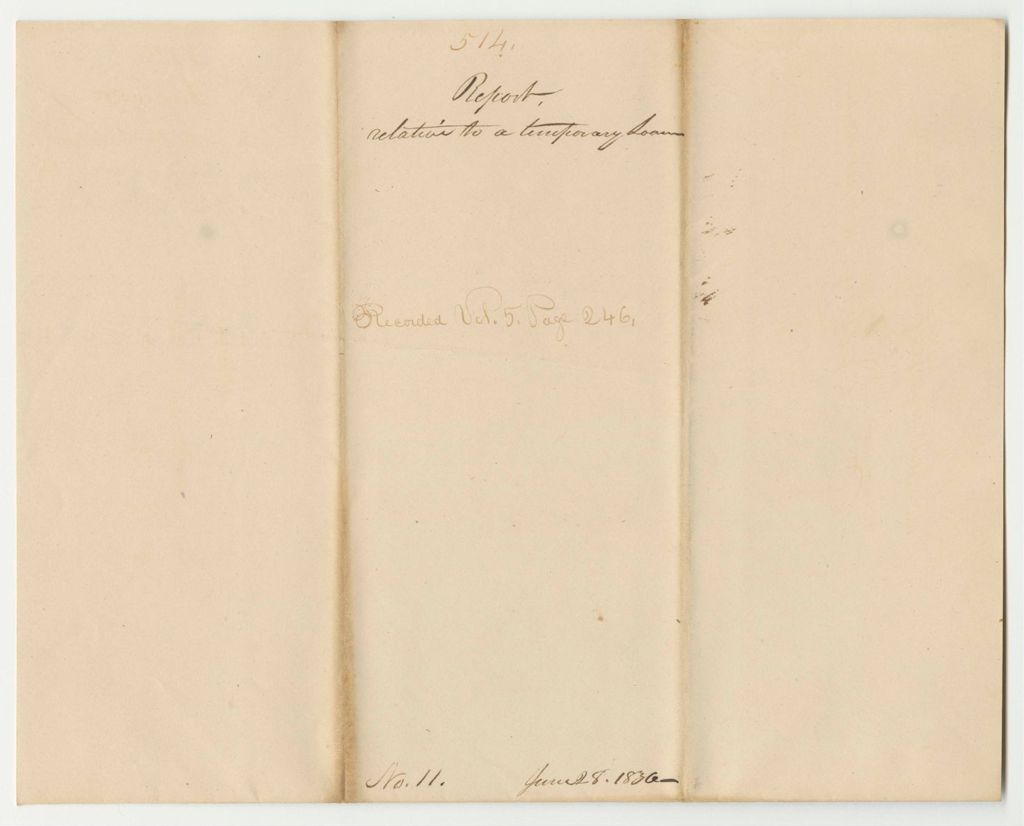 514.
Report,
relative to a temporary loan
Recorded Vol. 5. Page 246,
No. 11. June 28. 1836